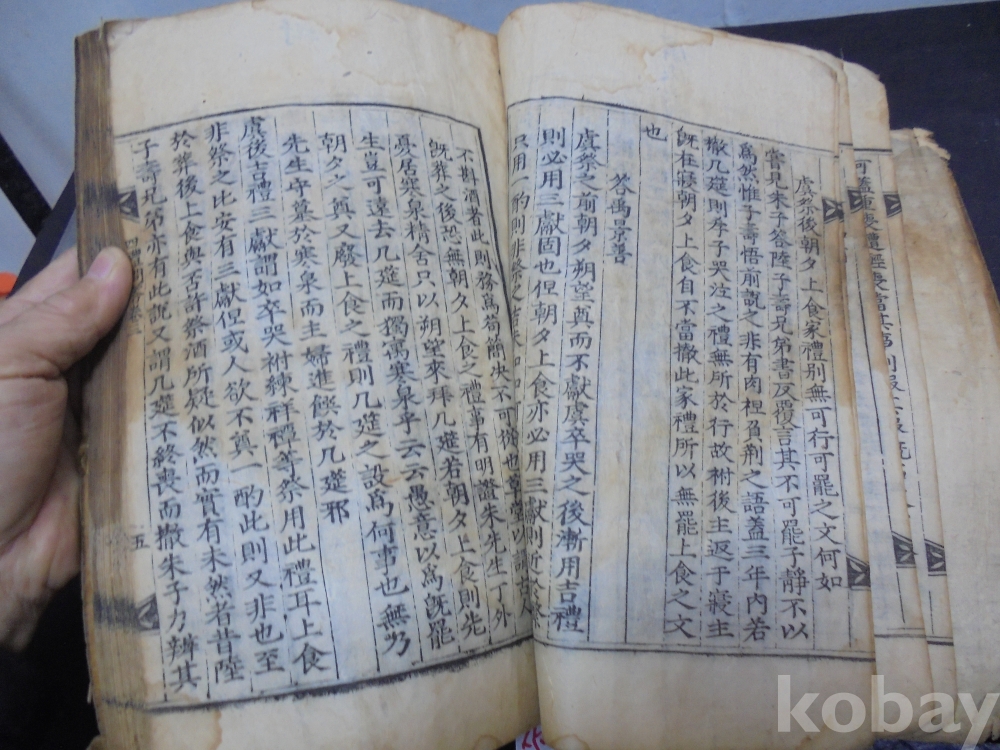 虞祭後朝夕上食家禮別無可行可罷之文何如
嘗見朱子答陸子壽兄弟書反覆言其不可罷子靜不以
爲然惟子壽悟前說之非有肉袒負荆之語蓋三年內若
撤几筵則孝子哭泣之禮無所於行故祔後主返于寢主
旣在寢朝夕上食自不當撤此家禮所以無罷上食之文
也
答禹景善
虞祭之前朝夕朔望奠而不獻虞卒哭之後漸用吉禮
則必用三獻固也但朝夕上食亦必用三獻則近於祭
只用一酌則非祭之
不斟酒者此則務爲苟簡決不可從也
旣葬之後恐無朝夕上食之禮事有明證朱先生丁外
憂居寒泉精舍只以朔望來拜几筵若朝夕上食則先
生豈可遠去几筵而獨寓寒泉乎云云愚意以爲旣罷
朝夕之奠又廢上食之禮則几筵之設爲何事也無乃
先生守墓於寒泉而主婦進饋於几筵邪
虞後吉禮三獻謂如卒哭祔練祥禫等祭用此禮耳上食
非祭之比安有三獻但或人欲不奠一酌此則又非也至
於葬後上食與否許祭酒所疑似然而實有未然者昔陸
子壽兄弟亦有此說又謂几筵不終喪而撤朱子力辨其
五
kobay